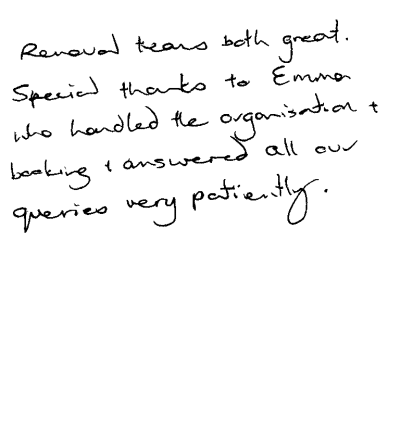 Removal teams both great.
Special thanks to Emma
who handled the organisation +
booking + answered all our
queries very patiently.